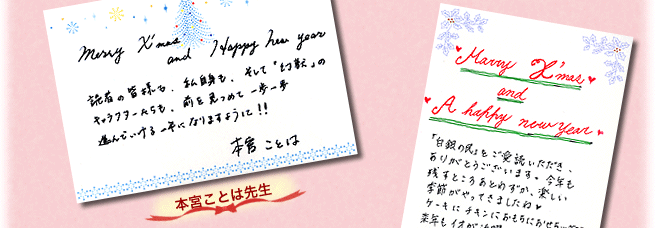 Merry X'mas
and Happy new year
読者の皆様も、私自身も、そして『幻獣』の
キャラクターたちも、前を見つめて一歩一歩
進んでいける一年になりますように!!
本宮ことは
本宮ことは先生
Marry X'mas
and
A happy new year
『白銀の民』をご愛読いただき、
ありがとうございます。今年も
残すところあとわずか、楽しい
季節がやってきましたね♥
ケーキにチキンにおもちにおせち
来年も